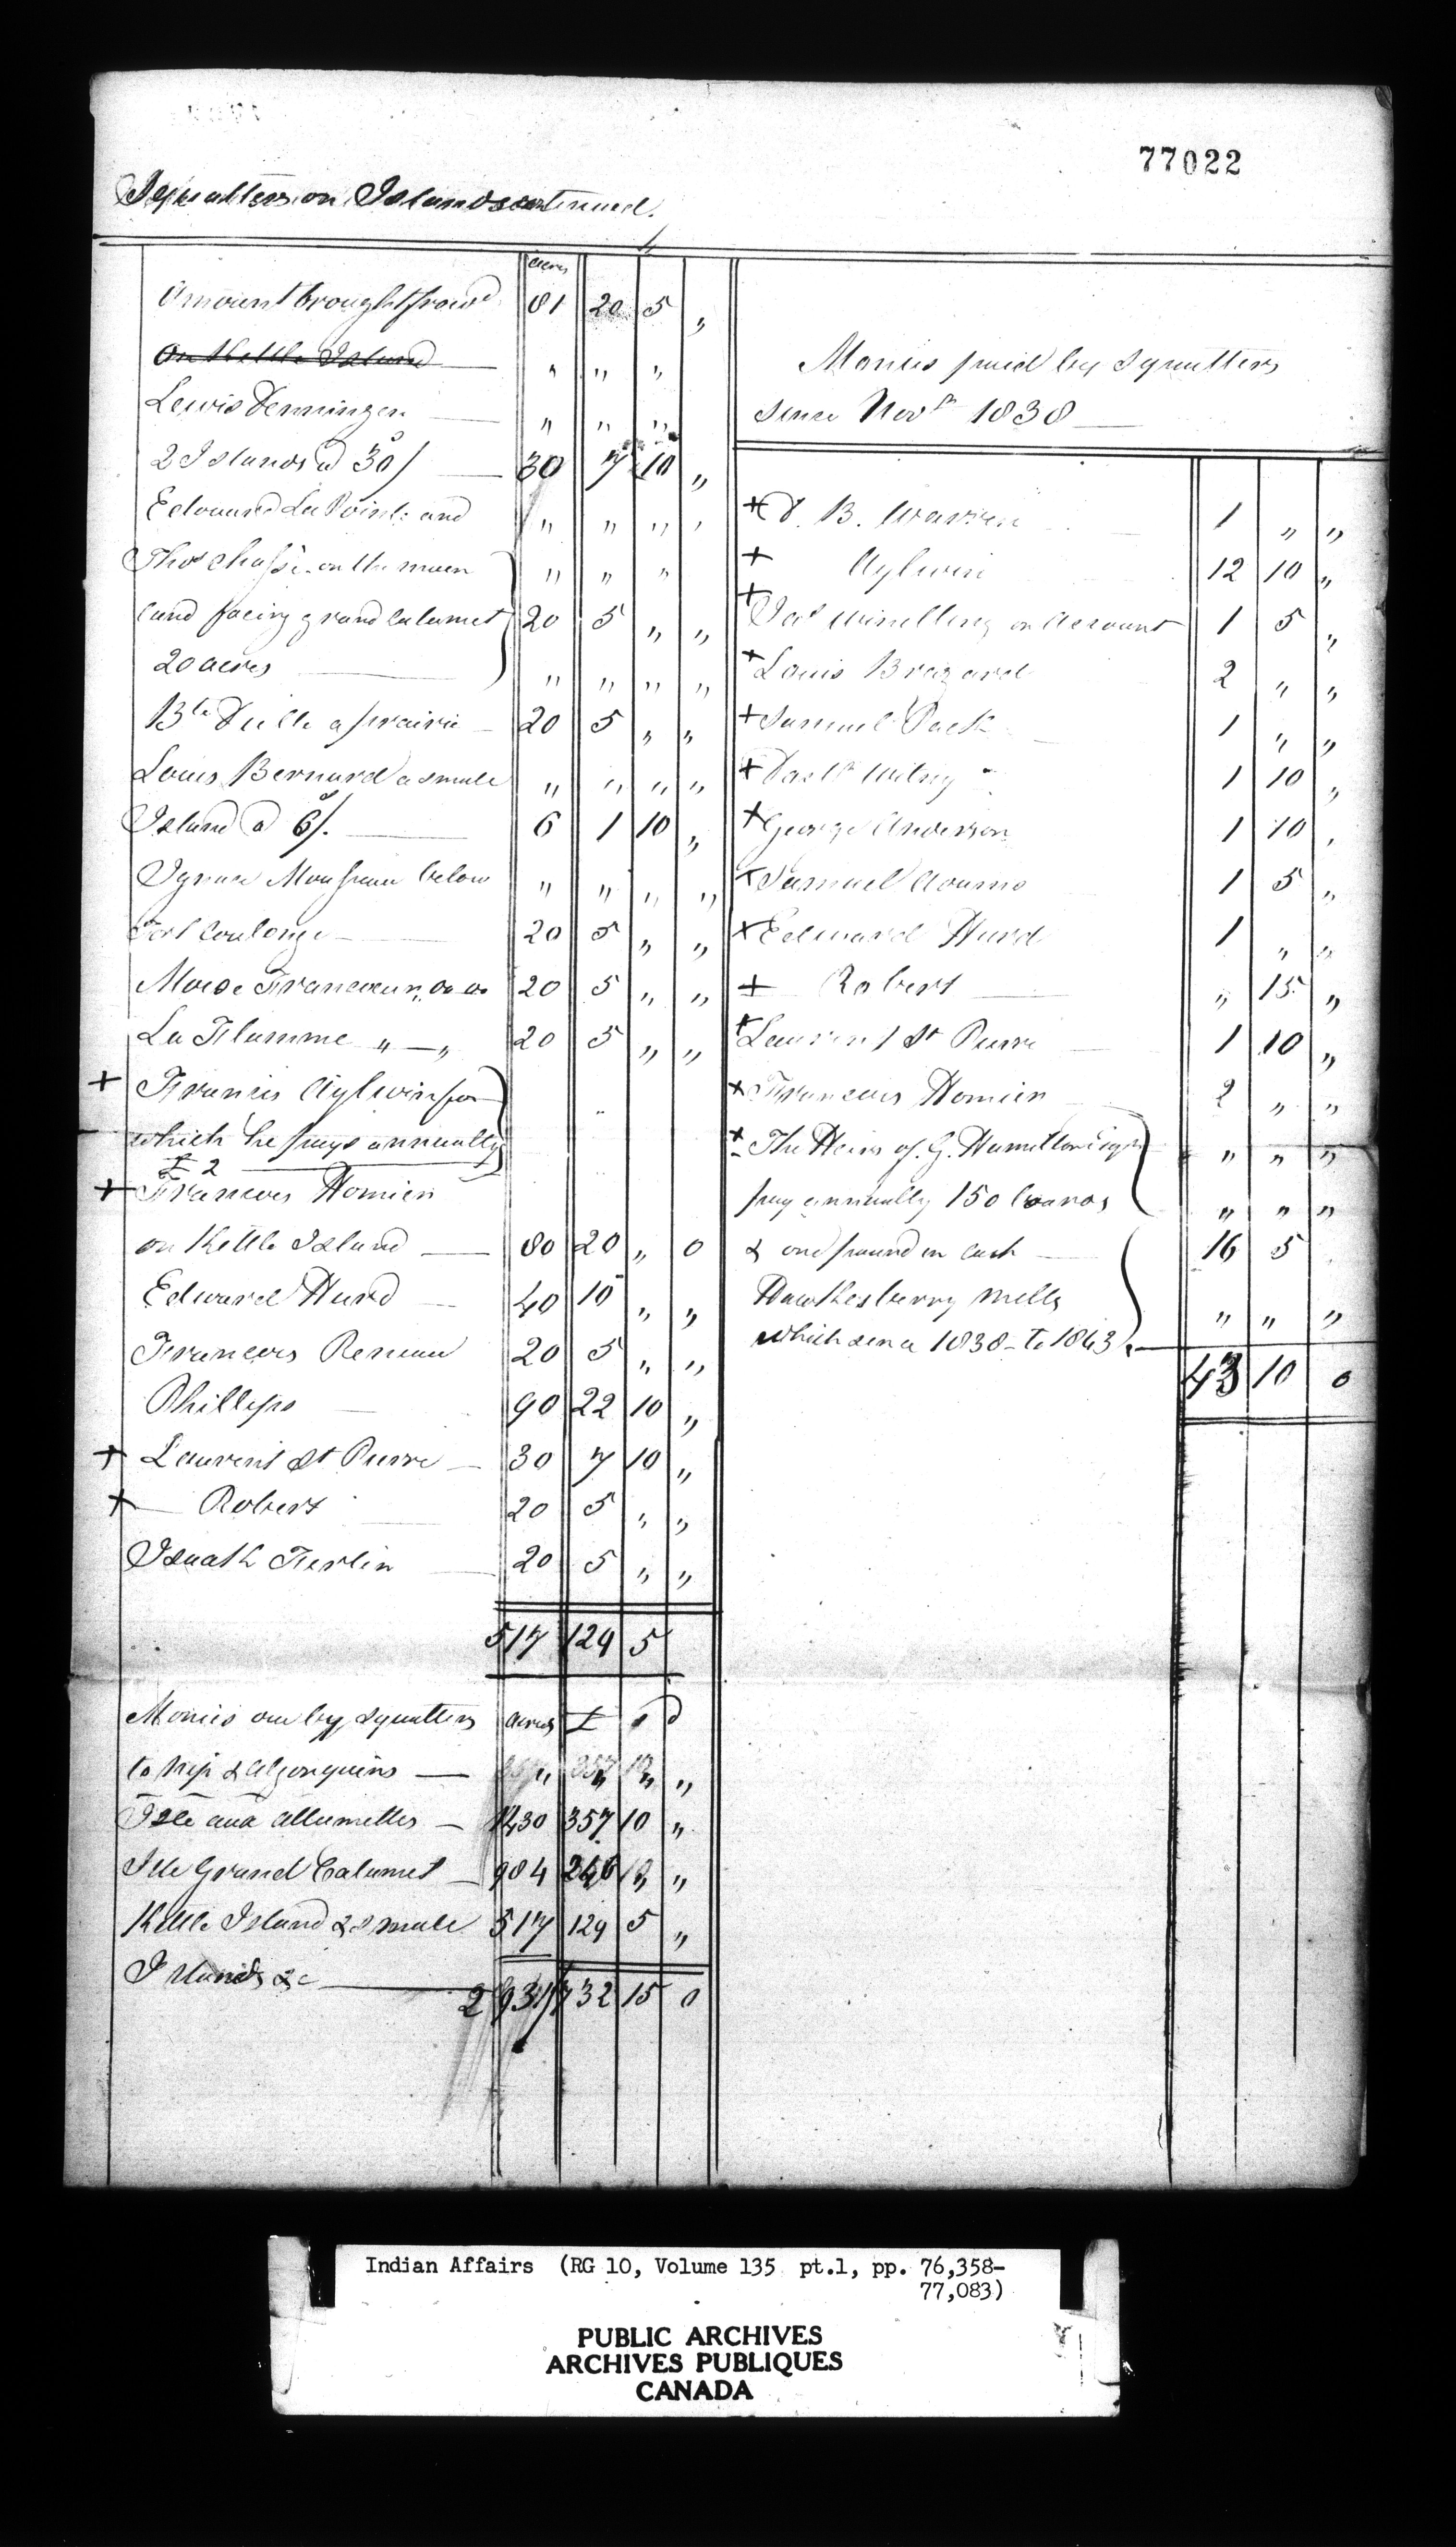 77022
Squatters on Islands continued.
acres
Amount brought forwd 81 20 5 "
On Kettle Island " " "
Lewis Denningen " " "
2 Islands a 30/ 30 7 10 "
Edouard La Pointe and " " " "
Thos Chassé on the main " " "
land facing grand Calumet 20 5 " "
20 acres " " " "
Bte Dulle a prairie 20 5 " "
Louis Bernard a small " " " "
Island a 6/. 6 1 10 "
Ignace below " " " "
Fort Coulonge 20 5 " "
Moise Francoeur, Do Do 20 5 " "
La Flamme " — " 20 5 " "
+ Francis Aylwin for
which he pays annually
£ 2
+ Francois Homier
on Kettle Island 80 20 " 0
Edward Hurd 40 10 " "
Francois Reneau 20 5 " "
Phillips 90 22 10 "
+ Laurent St Pierre 30 7 10 "
+ Robert 20 5 " "
20 5 " "
517 129 5
Monies due by squatters acres £ s d
to Nip & Algonquins " " " "
Isle aux allumettes 1430 357 10 "
Ile Grand Calumet 984 246 "
Kettle Island & small 517 129 5 "
Islands &c
2931 732 15 0
Monies paid by squatters
since Novr 1838
+ B. Warren 1 " "
+ Aylwin 12 10 "
+ Jas on account 1 5 "
+ Louis Brazard 2 " "
+ Samuel Pack 1 " "
+ 1 10 "
+ George Anderson 1 10 "
+ Samuel Adams 1 5 "
+ Edward Hurd 1 " "
+ Robert " 15 "
+ Laurent St Pierre 1 10 "
+ Francois Homier 2 " "
+ The Heirs of G. Hamilton Esqr " " "
pay annually 150 boards " " "
& one pound in cash 16 5
Hawkesberry Mills " " "
which since 1838 to 1843
43 10 0
Indian Affairs (RG 10, Volume 135 pt.1, pp. 76,358-
77,083)
PUBLIC ARCHIVES
ARCHIVES PUBLIQUES
CANADA